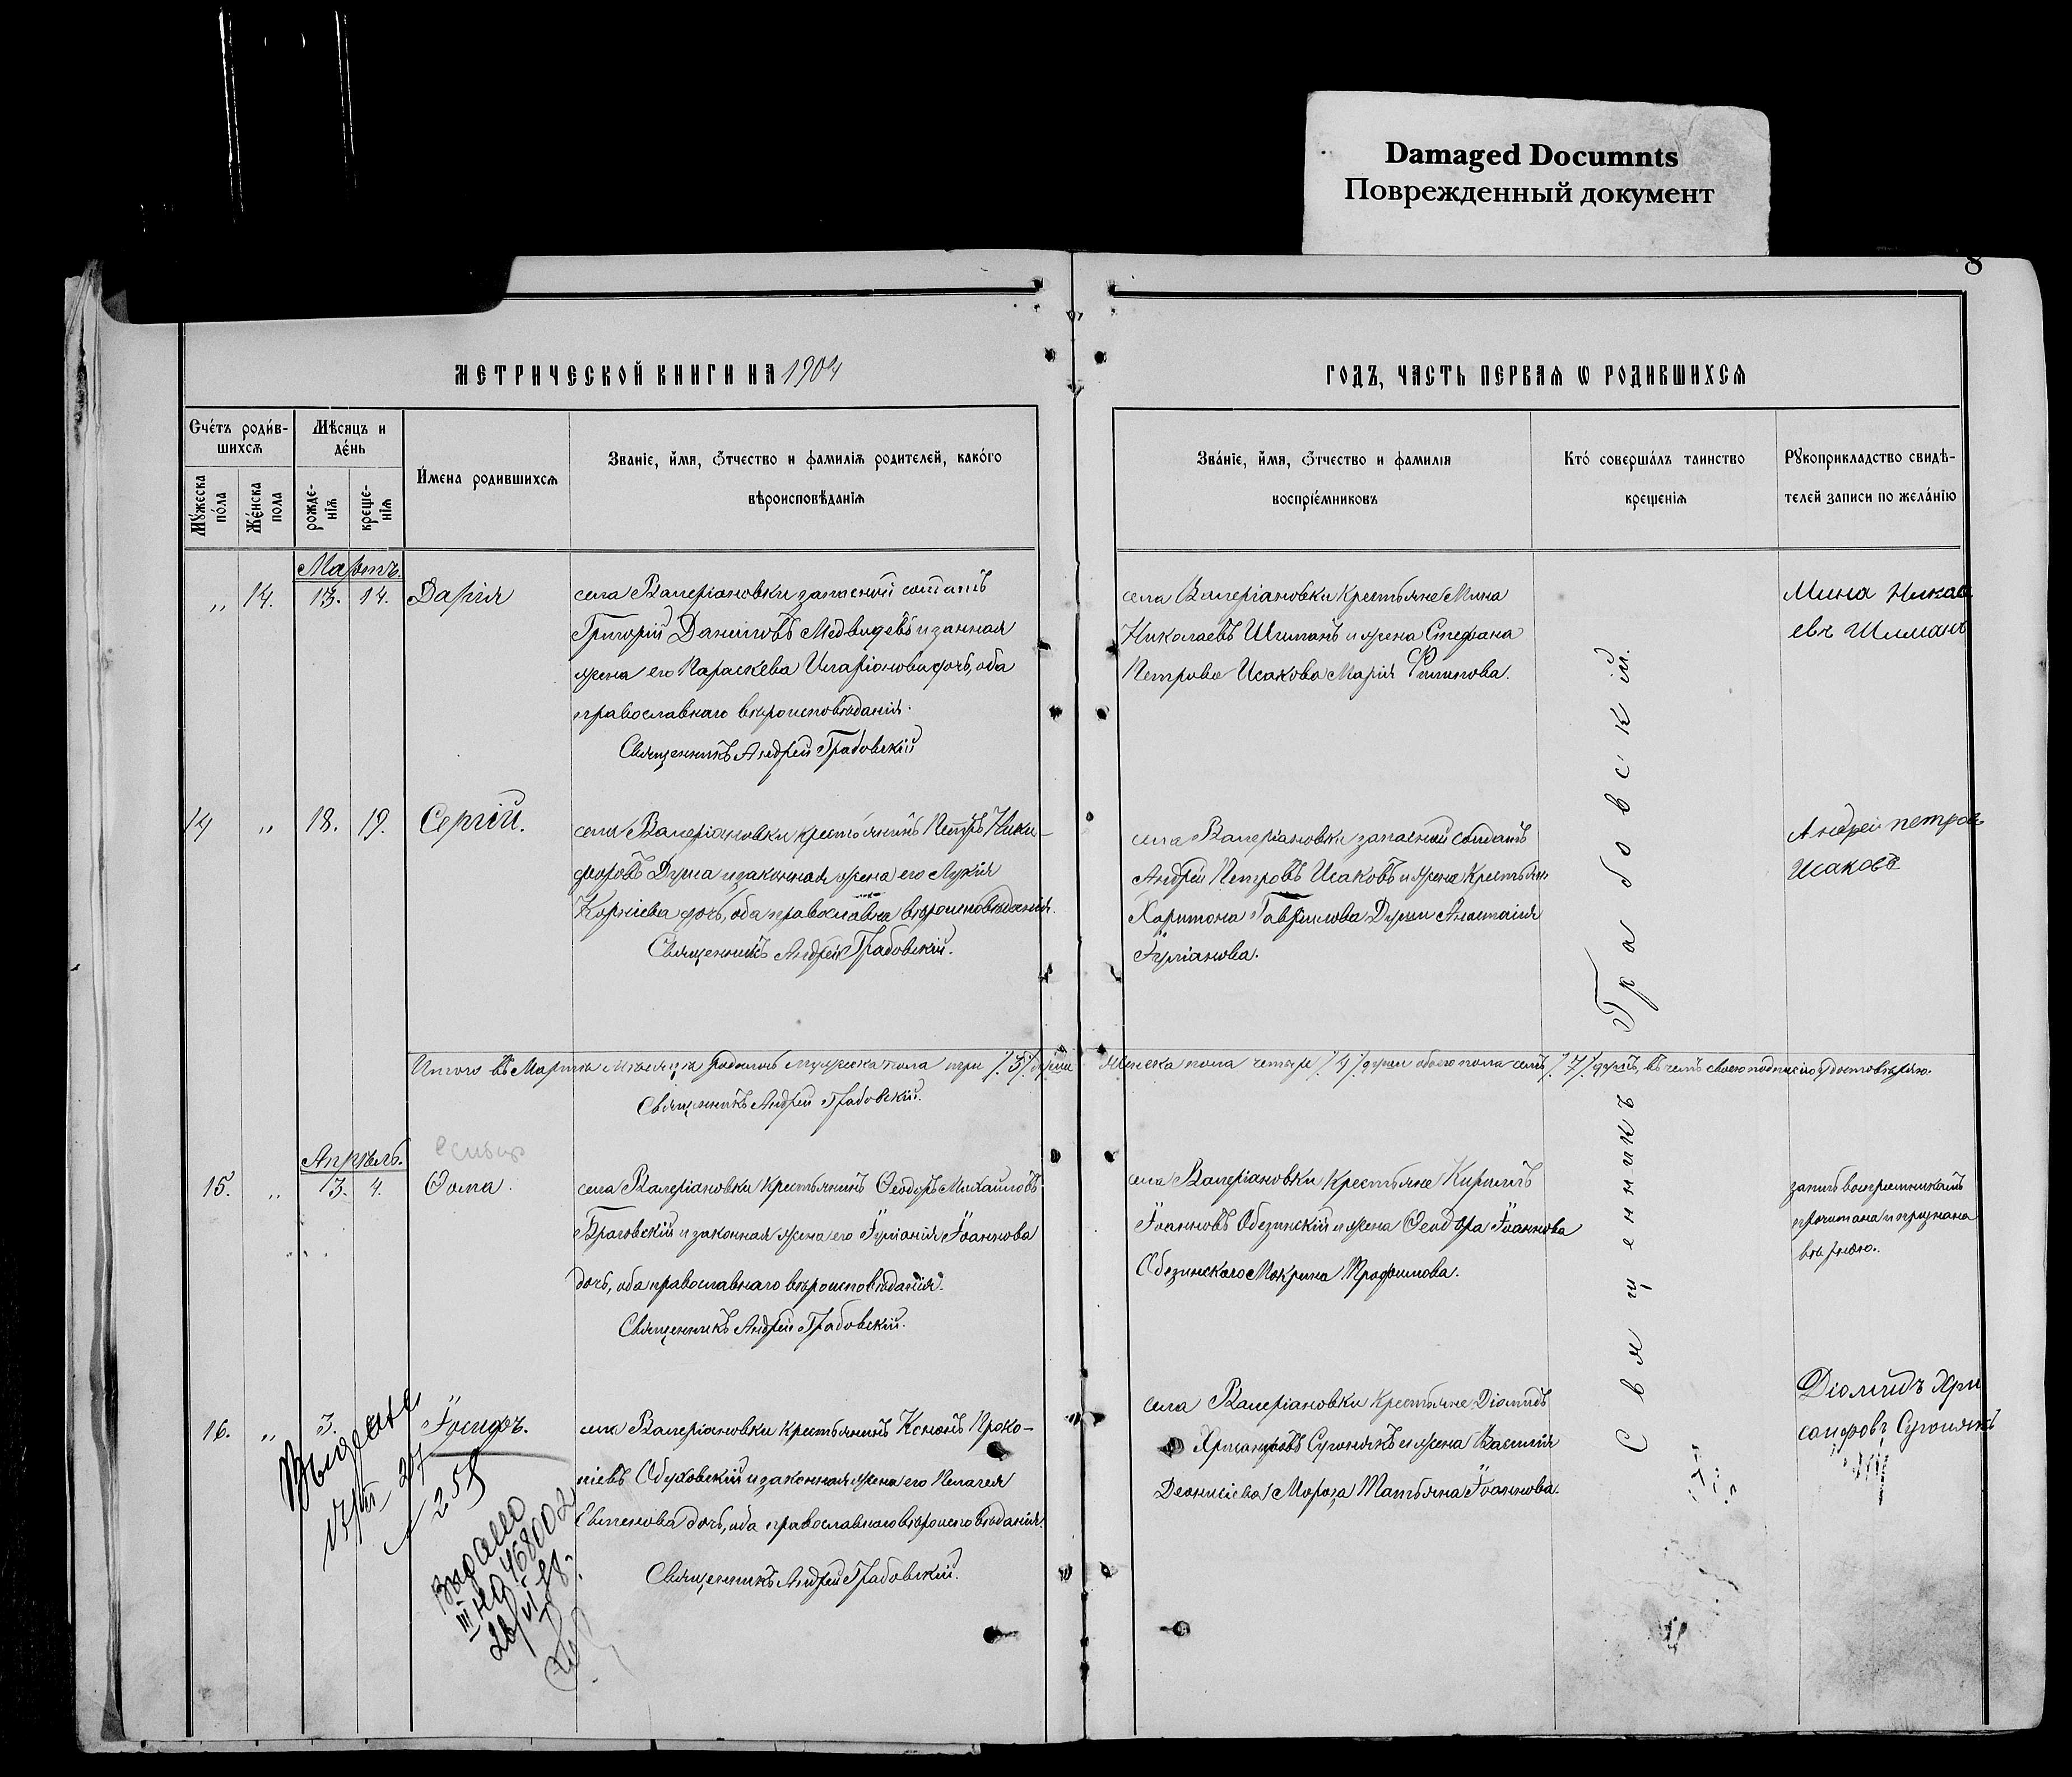 Damaged Documnts
Поврежденный документ
8
МЕТРИЧЕСКОЙ КНИГИ НА 1904
ГОДЪ, ЧАСТЬ ПЕРВАЯ Ѡ РОДИВШИХСЯ
Счéтъ роди́в-
шихсѧ
Мѣсяцъ и
дéнь
Мꙋ́жеска
пóла
Жéнска
пола
рожде-
нїѧ
креще-
нїѧ
И́мена родившихсѧ
Званіе, и́мя, ѻ́тчество и фамилїѧ родителей, какóго
вѣроисповѣданїѧ
Звáніе, и́мя, ѻ́тчество и фамилія
воспрїéмниковъ
Ктó совершáлъ таинство
крещенїѧ
Рꙋкоприкладство свидѣ-
телей записи по желáнїю
Мартъ.
„ 14. 13. 14. Дарія
села Валеріановки запасный солдатъ
Григорій Даниловъ Медвидевъ и законная
жена его Параскева Иларіонова дочь, оба
православнаго вѣроисповѣданія.
Священникъ Андрей Грабовскій
села Валеріановки крестьяне Мина
Николаевъ Шиманъ и жена Стефана
Петрова Исакова Марія Филипова.
Мина Никола
евъ Шиманъ
14 „ 18. 19. Сергій.
села Валеріановки крестьянинъ Петръ Ники-
форовъ Дуриа и законная жена его Лукія
Корніева дочь, оба православна вѣроисповѣданія.
Священникъ Андрей Грабовскій.
села Валеріановки запасный солдатъ
Андрей Петровъ Исаковъ и жена крестьян.
Харитона Гаврилова Анастасія
Іуліанова.
Андреи петров
Исаковъ
Итого въ Мартѣ мѣсяцѣ родилось мужеска пола три /3/ души женска пола четыре /4/ души обоего пола семь /7/ душъ, въ чемъ своею подписью удостовѣряю.
Священникъ Андрей Грабовскій.
Апрѣль.
15. „ 3. 4. Ѳома.
села Валеріановки крестьянинъ Ѳеодоръ Михайловъ
Браговскій и законная жена его Іуліанія Іоаннова
дочь, оба православнаго вѣроисповѣданія.
Священникъ Андрей Грабовскій.
села Валеріановки крестьяне Кириллъ
Іоанновъ Обезинскій и жена Ѳеодора Іоаннова
Обезинскаго Макрина Трофимова.
запись воспріемникамъ
прочитана и признана
вѣрною.
16. „ 3. Іосифъ.
села Валеріановки крестьянинъ Кононъ Проко-
піевъ Обуховскій и законная жена его Пелагея
дочь, оба православнаго вѣроисповѣданія.
Священникъ Андрей Грабовскій.
села Валеріановки крестьяне Діомидъ
Хрисанфовъ Сугонякъ и жена Василія
Діонисіева Мороза Татьяна Іоаннова.
Діомидъ Хри
санфовъ Сугонякъ
Священникъ Грабовскій.
Выдано
27
255
Выдано
III НО 468002